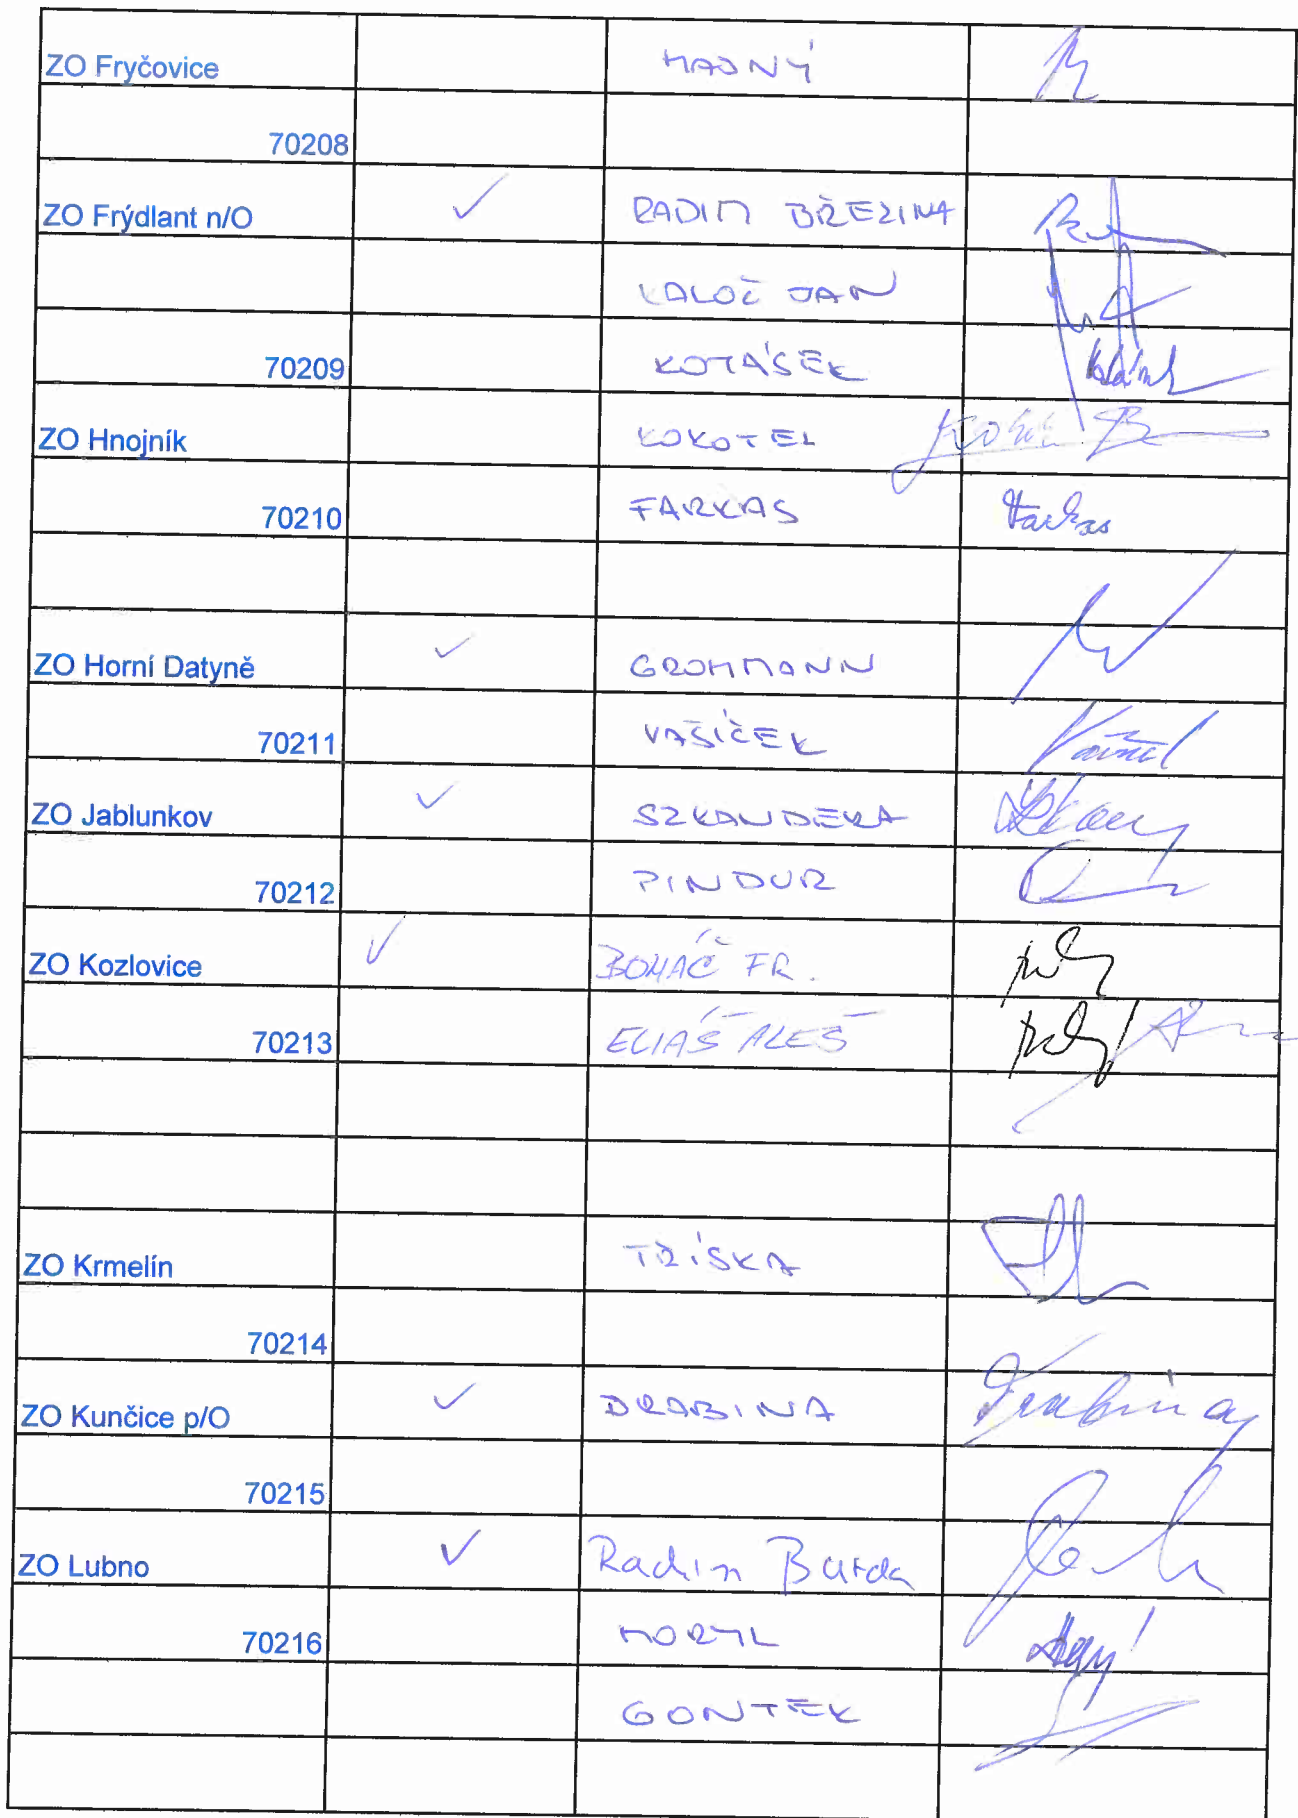 ZO Fryčovice HADNÝ
70208
ZO Frýdlant n/O ✓ RADIM BŘEZINA
KALOČ JAN
70209 KOTÁSEK
ZO Hnojník KOKOTEL
70210 FARKAS Farkas
ZO Horní Datyně ✓ GROHMANN
70211 VAŠÍČEK
ZO Jablunkov ✓ SZKANDERA
70212 PINDUR
ZO Kozlovice ✓ BOHÁČ FR.
70213 ELIÁŠ ALEŠ
ZO Krmelín TŘÍSKA
70214
ZO Kunčice p/O ✓ DRABINA Drabina
70215
ZO Lubno ✓ Radim Burda
70216 MORYL
GONTEK